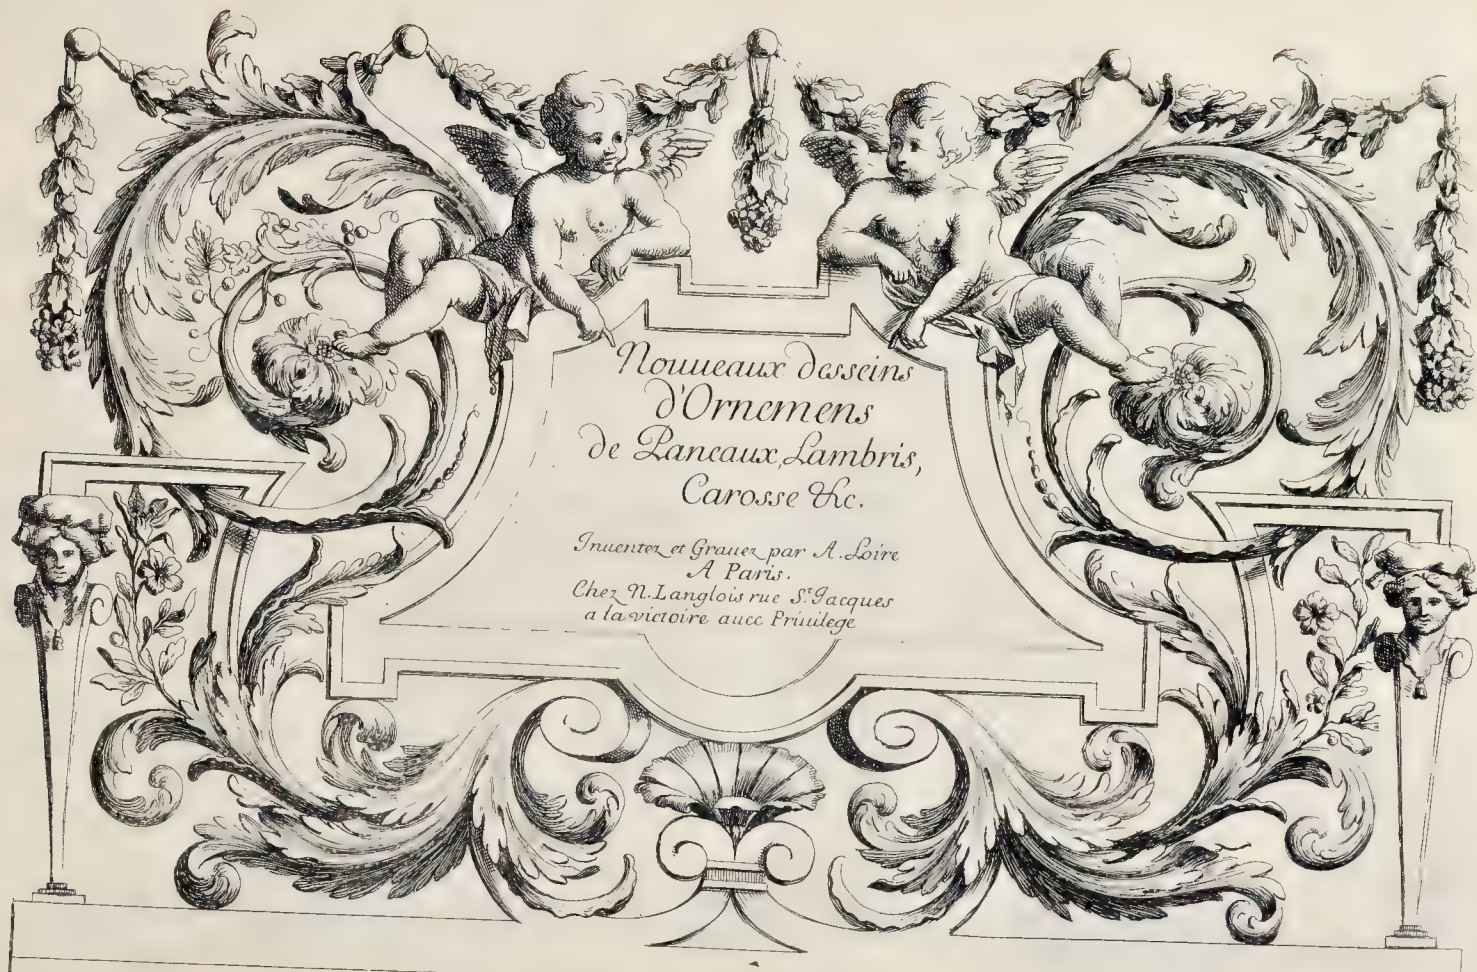 Nouueaux desseins
d'Ornemens
de Paneaux, Lambris,
Carosse &c.
Inuentez et Grauez par A. Loire
A Paris.
Chez N. Langlois rue S.t Jacques
a la victoire auec Priuilege